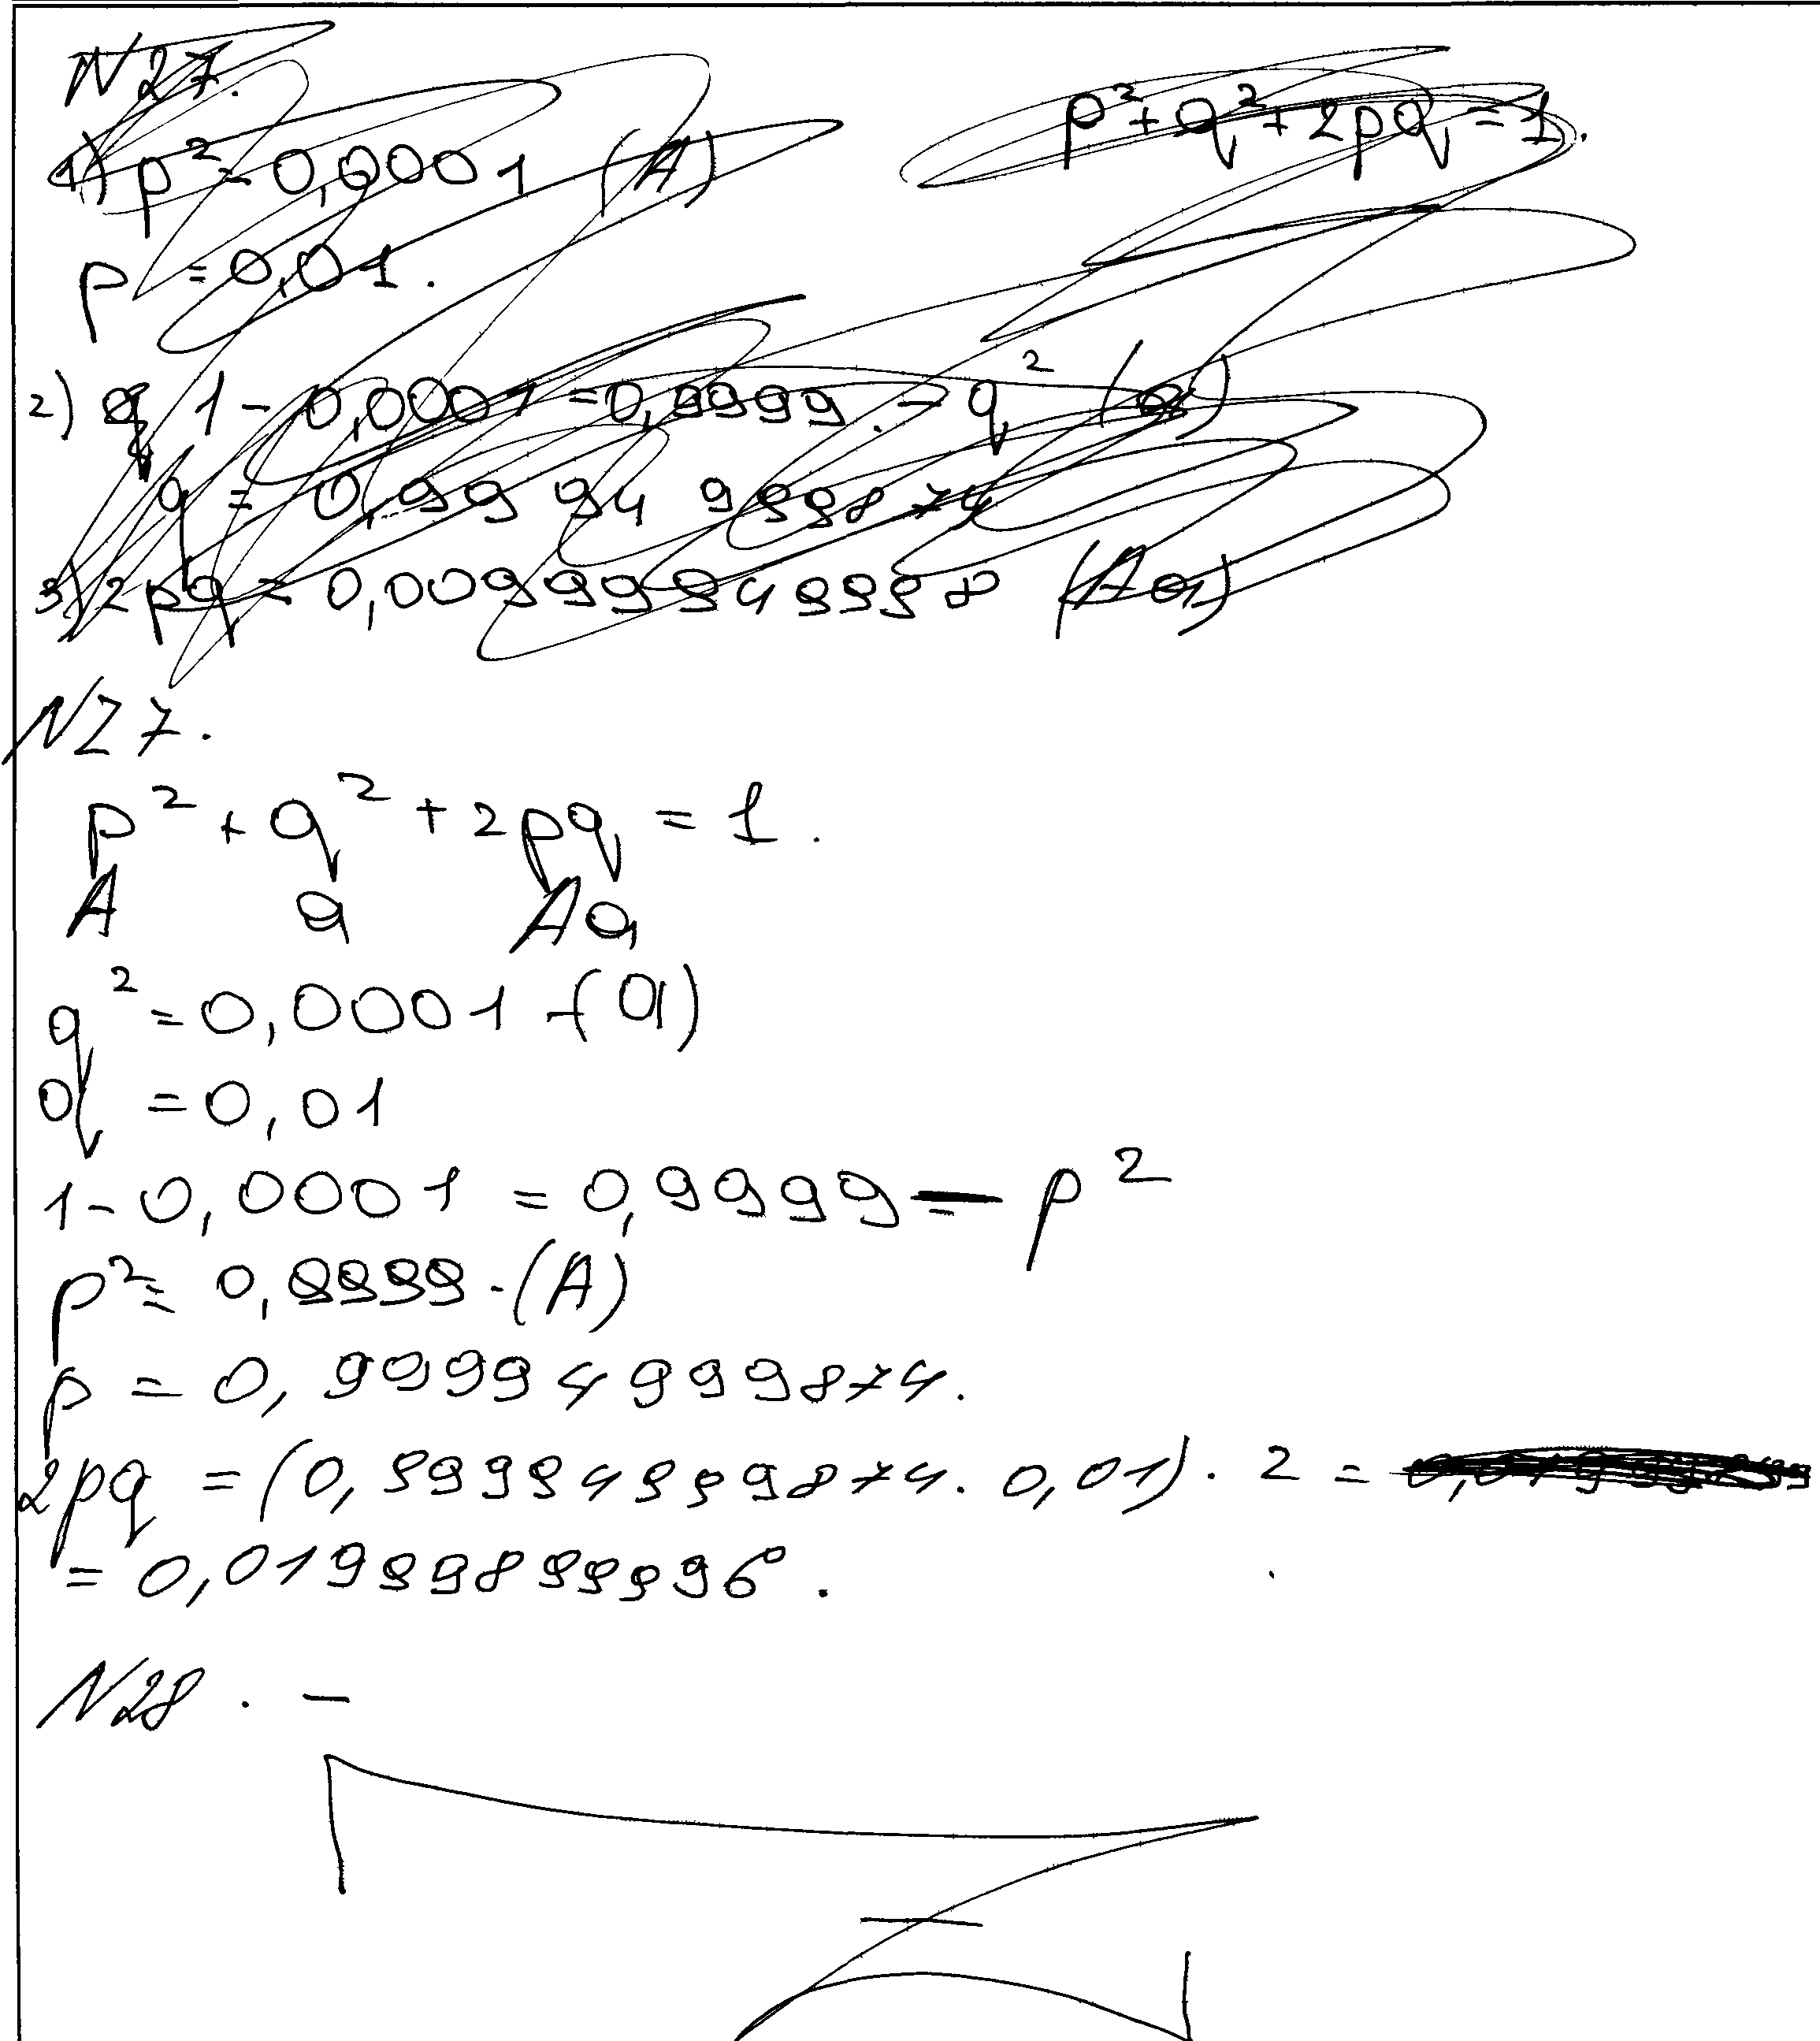 N27.
p²+q²+2pq=1.
1) p²-0,0001 (A)
p =0,01.
2) q 1-0,0001 =0,9999.-q² (a)
q = 0,9994999874
3) 2pq= 0,009999949998 (Aa)
N27.
p²+q²+2pq=1.
A a Aa
q²=0,0001-(a)
q =0,01
1-0,0001 =0,9999=p²
p²=0,9999-(A)
p =0,99994999874.
2pq =(0,99994999874.0,01).2=
=0,01999899996.
N28. -